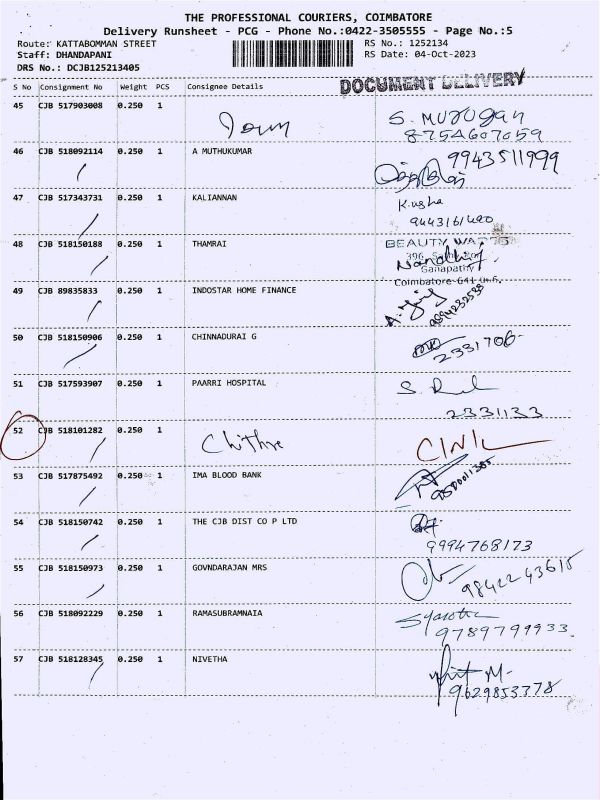 THE PROFESSIONAL COURIERS, COIMBATORE
Delivery Runsheet - PCG - Phone No.:0422-3505555 - Page No.:5
Route: KATTABOMMAN STREET RS No.: 1252134
Staff: DHANDAPANI RS Date: 04-Oct-2023
DRS No.: DCJB125213405
DOCUMENT DELIVERY
S No Consignment No Weight PCS Consignee Details
45 CJB 517903008 0.250 1 S. MURUGAN
8754607059
46 CJB 518092114 0.250 1 A MUTHUKUMAR 9943511999
47 CJB 517343731 0.250 1 KALIANNAN K.usha
9443161490
48 CJB 518150188 0.250 1 THAMRAI BEAUTY
396,
Ganapathy
Coimbatore-641
49 CJB 89835833 0.250 1 INDOSTAR HOME FINANCE
50 CJB 518150906 0.250 1 CHINNADURAI G 2331706
51 CJB 517593907 0.250 1 PAARRI HOSPITAL
2331133
52 CJB 518101282 0.250 1 Chithra
53 CJB 517875492 0.250 1 IMA BLOOD BANK
54 CJB 518150742 0.250 1 THE CJB DIST CO P LTD
9994768173
55 CJB 518150973 0.250 1 GOVNDARAJAN MRS 9842243615
56 CJB 518092229 0.250 1 RAMASUBRAMNAIA
9789799933.
57 CJB 518128345 0.250 1 NIVETHA
9629853778